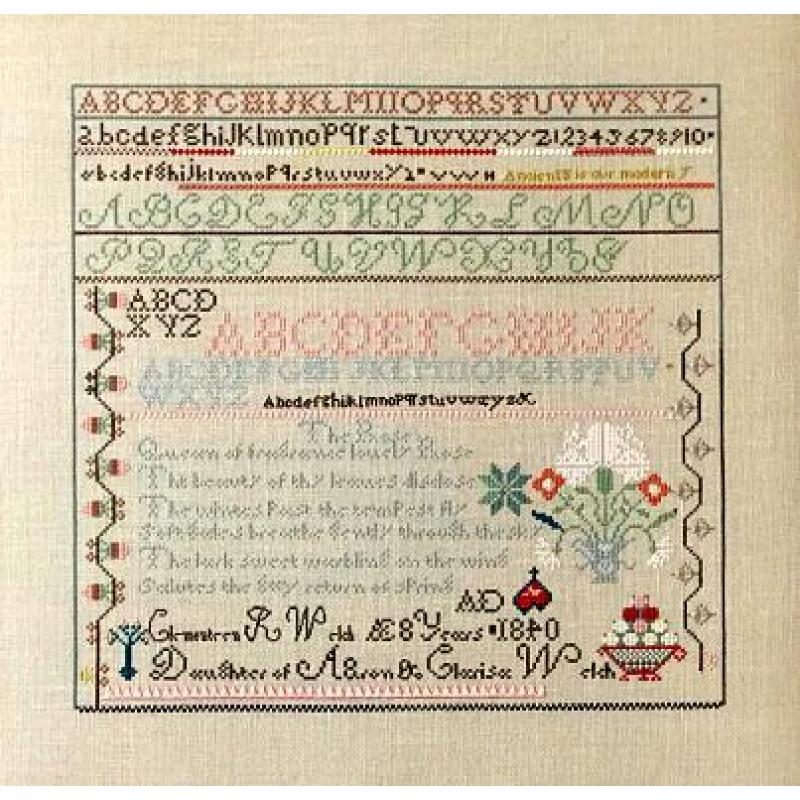 ABCDEFGHIJKLMNOPQRSTUVWXYZ
abcdefghiJklmnopqrstuvwxyz12345678910
abcdefghijklmnopqrstuvwxyz Ancients is our modern
ABCDEFGHIJKLMNO
PQRSTUVWXYZ
ABCD
XYZ
ABCDEFGHIJK
ABCDEFGHIJKLMNOPQRSTUV
WXYZ
Abcdefghiklmnopqrstuvwxyz&
The Rose
Queen of fragrance lovely Rose
The beauty of thy leaves disclose
The winters Past the tempest fly
Soft Gales breathe Gently through the sky
The lark sweet warbling on the wing
Salutes the Gay return of spring
AD
R Welch Æ 8 Years 1840
Daughter of Aaron & Clarisa Welch